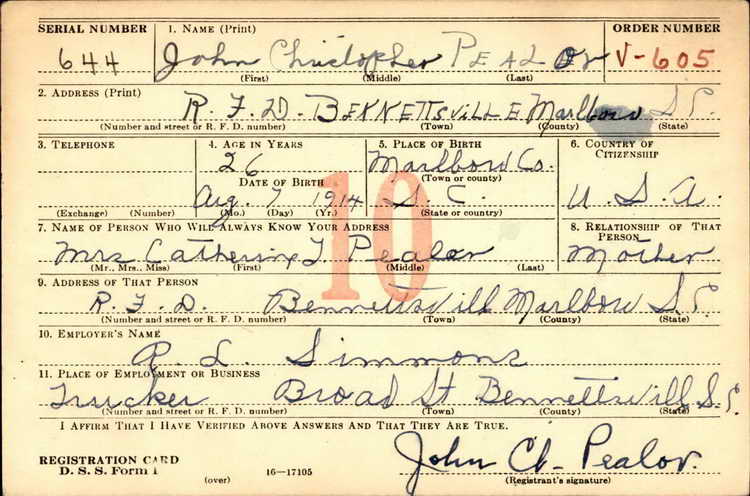 SERIAL NUMBER 1. NAME (Print) ORDER NUMBER
644 John Christopher PEALOR V-605
(First) (Middle) (Last)
2. ADDRESS (Print)
R. F. D. - BENNETTSVILLE Marlboro S. C.
(Number and street or R. F. D. number) (Town) (County) (State)
3. TELEPHONE 4. AGE IN YEARS 5. PLACE OF BIRTH 6. COUNTRY OF CITIZENSHIP
26 Marlboro Co.
DATE OF BIRTH (Town or county)
Aug. 7 1914 S. C. U. S. A.
(Exchange) (Number) (Mo.) (Day) (Yr.) (State or country)
10
7. NAME OF PERSON WHO WILL ALWAYS KNOW YOUR ADDRESS 8. RELATIONSHIP OF THAT PERSON
Mrs Catherine J. Pealor Mother
(Mr., Mrs., Miss) (First) (Middle) (Last)
9. ADDRESS OF THAT PERSON
R. F. D. Bennettsvill Marlboro S. C.
(Number and street or R. F. D. number) (Town) (County) (State)
10. EMPLOYER'S NAME
R. L. Simmons
11. PLACE OF EMPLOYMENT OR BUSINESS
Trucker Broad St Bennettsvill S. C.
(Number and street or R. F. D. number) (Town) (County) (State)
I AFFIRM THAT I HAVE VERIFIED ABOVE ANSWERS AND THAT THEY ARE TRUE.
John Ch- Pealor.
REGISTRATION CARD
D. S. S. Form 1 16—17105
(over) (Registrant's signature)